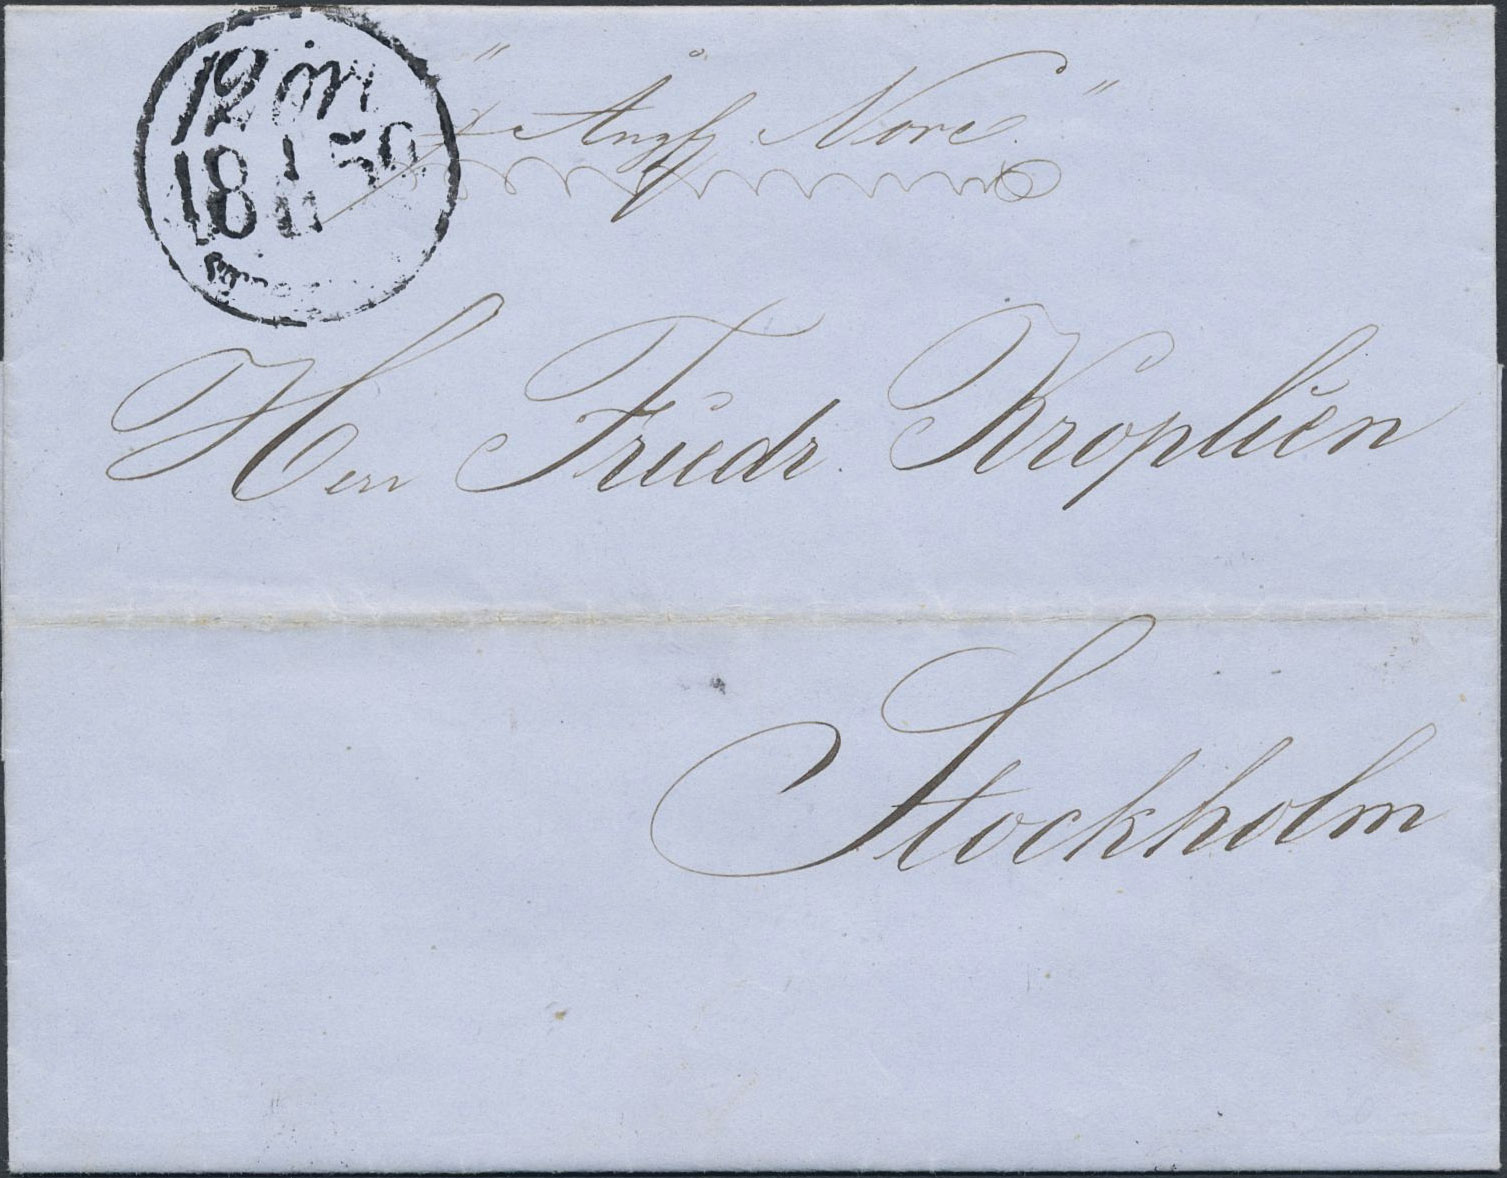 12 ör
18 1/11 56
" p Ångf. Nore "
Herr Friedr. Kropliën
Stockholm